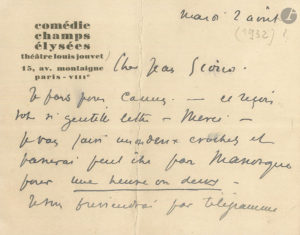 comédie
champs
élysées
théâtre louis jouvet
15, av. montaigne
paris - VIIIe
mardi 2 août
(1932)
Cher Jean Giono.
Je pars pour Cannes. — ce reçois
votre si gentille lettre — Merci. —
Je vais faire un ou deux crochets et
passerai peut être par Manosque
pour une heure ou deux —
Je vous préviendrai par télégramme